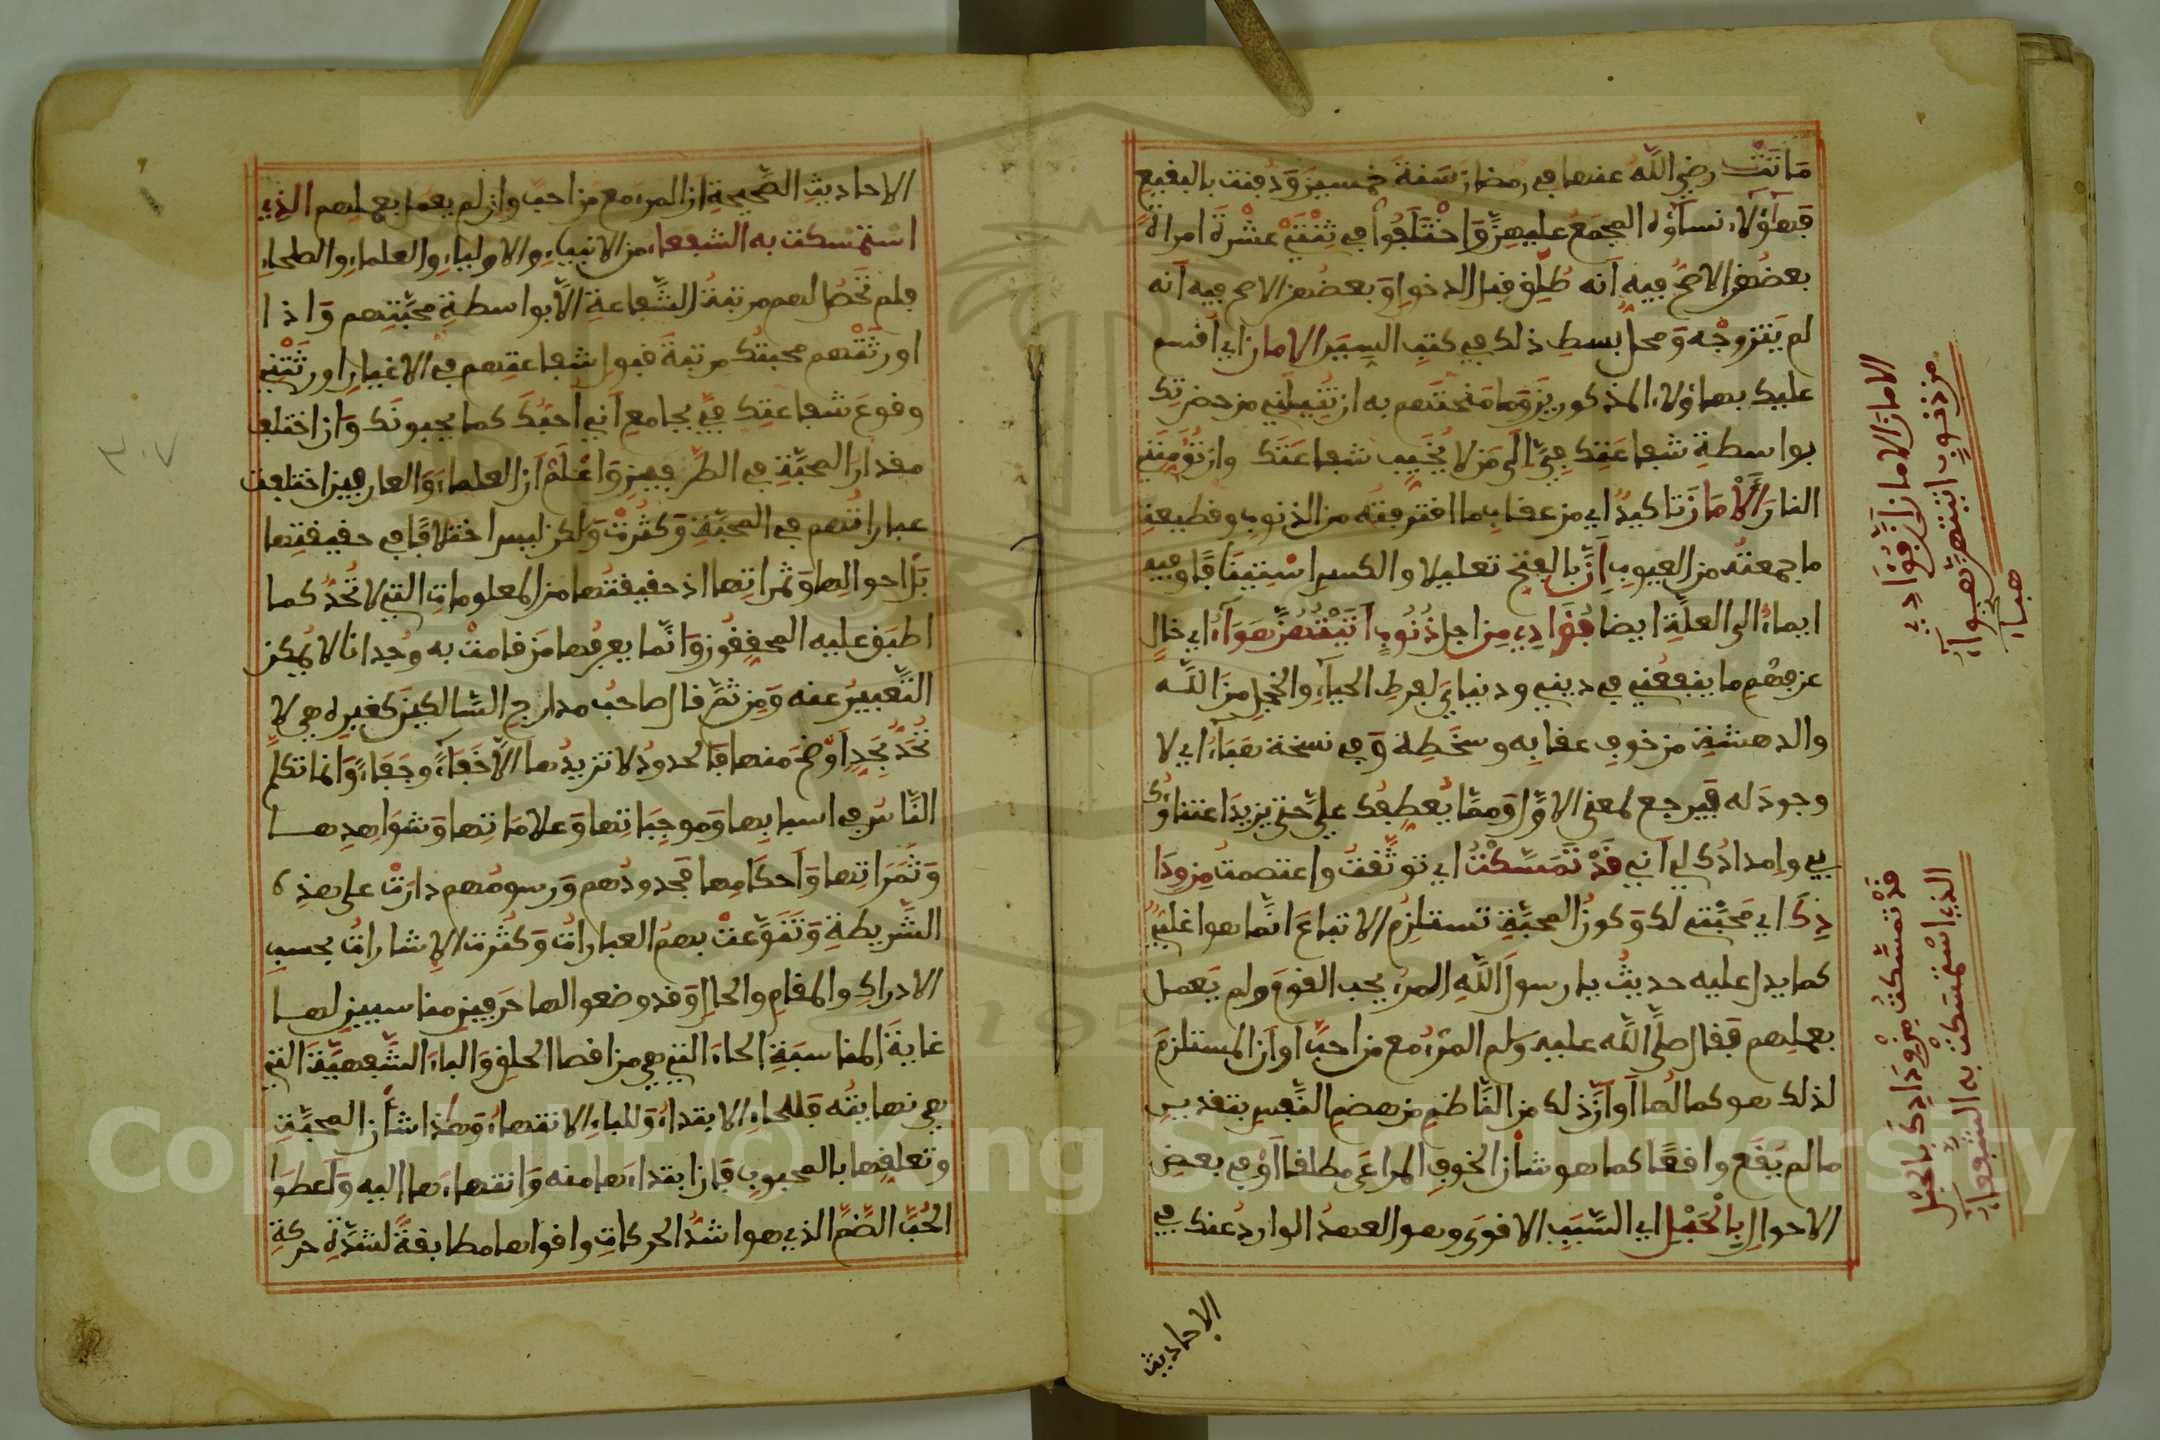 ماتت رضي الله عنها في رمضان سنة خمسين ودفنت بالبقيع
فهؤلاء نساؤه المجمع عليهن واختلفوا في ثنتي عشرة امراة
بعضهن الاصح فيه أنه طلق قبل الدخول وبعضهن الاصح فيه أنه
لم يتزوجه ومحل بسط ذلك في كتب السير الامان اي أقسم
عليك بهاؤلاء المذكورين وما منحتهم به ان تقبلني من حضرتك
بواسطة شفاعتك في الى من لا يخيب شفاعتك وان تؤمنني
النار الأمان تاكيد اي من عقاب ما اقترفته من الذنوب وقطيعة
ما جمعته من العيوب إن بالفتح تعليلا والكسر استينافا وفيه
ايماء الى العلة ايضا فؤادي من اجل ذنوب أتيتهن هواء اي خال
عن فهم ما ينفعني في ديني ودنياي لفرط الحياء والخجل من الله
والدهشة من خوف عقابه وسخطه وفي نسخة هباء اي لا
وجود له فيرجع لمعنى الاول ومما يعطفك علي حتى يزيد اعتناؤك
بي وإمدادك لي أني قد تمسكت اي توثقت واعتصمت من ودا
دك اي محبتي لك وكون المحبة تستلزم الاتباع انما هو اغلبي
كما يدل عليه حديث يا رسول الله المرء يحب القوم ولم يعمل
بعملهم فقال صلى الله عليه وسلم المرء مع من احب او أن المستلزم
لذلك هو كمالها او أن ذلك من الناظم من هضم النفس بتقدير
ما لم يقع واقعا كما هو شأن الخوف المراعى مطلقا أو في بعض
الاحوال بالحبل اي السبب الاقوى وهو العهد الوارد عنك في
الاحاديث
الامان الامان إن فؤادي
من ذنوب اتيتهن هواء
نخ
هباء
قد تمسكت من ودادك بالحبل
الذي استمسكت به الشفعاء
الاحاديث الصحيحة ان المرء مع من احب وان لم يعمل بعملهم الذي
استمسكت به الشفعاء من الانبياء والاولياء والعلماء والصلحاء
فلم تحصل لهم مرتبة الشفاعة الا بواسطة محبتهم واذا
اورثتهم محبتك مرتبة قبول شفاعتهم في الاغيار اورثتني
وقوع شفاعتك في بجامع أني احبك كما يحبونك وان اختلف
مقدار المحبة في الطرفين واعلم أن العلماء والعارفين اختلفت
عباراتهم في المحبة وكثرت ولكن ليس اختلافا في حقيقتها
بل احوالها وثمراتها اذ حقيقتها من المعلومات التي لا تحد كما
اطبق عليه المحققون وانما يعرفها من قامت به وجدانا لا يمكن
التعبير عنه ومن ثم قال صاحب مدارج السالكين كغيره هي لا
تحد بحد اوضح منها فالحدود لا تزيدها الا خفاء وجفاء وانما تكلم
الناس في اسبابها وموجباتها وعلاماتها وشواهدها
وثمراتها وأحكامها فحدودهم ورسومهم دارت على هذه
الشريطة وتنوعت بهم العبارات وكثرت الاشارات بحسب
الادراك والمقام والحال وقد وضعوا لها حرفين مناسبين لها
غاية المناسبة الحاء التي هي من اقصا الحلق والباء الشفهية التي
هي نهايته فللحاء الابتداء وللباء الانتهاء وهذا شأن المحبة
وتعلقها بالمحبوب فان ابتداءها منه وانتهاءها اليه وأعطوا
الحب الضم الذي هو اشد الحركات واقواها مطابقة لشدة حركة